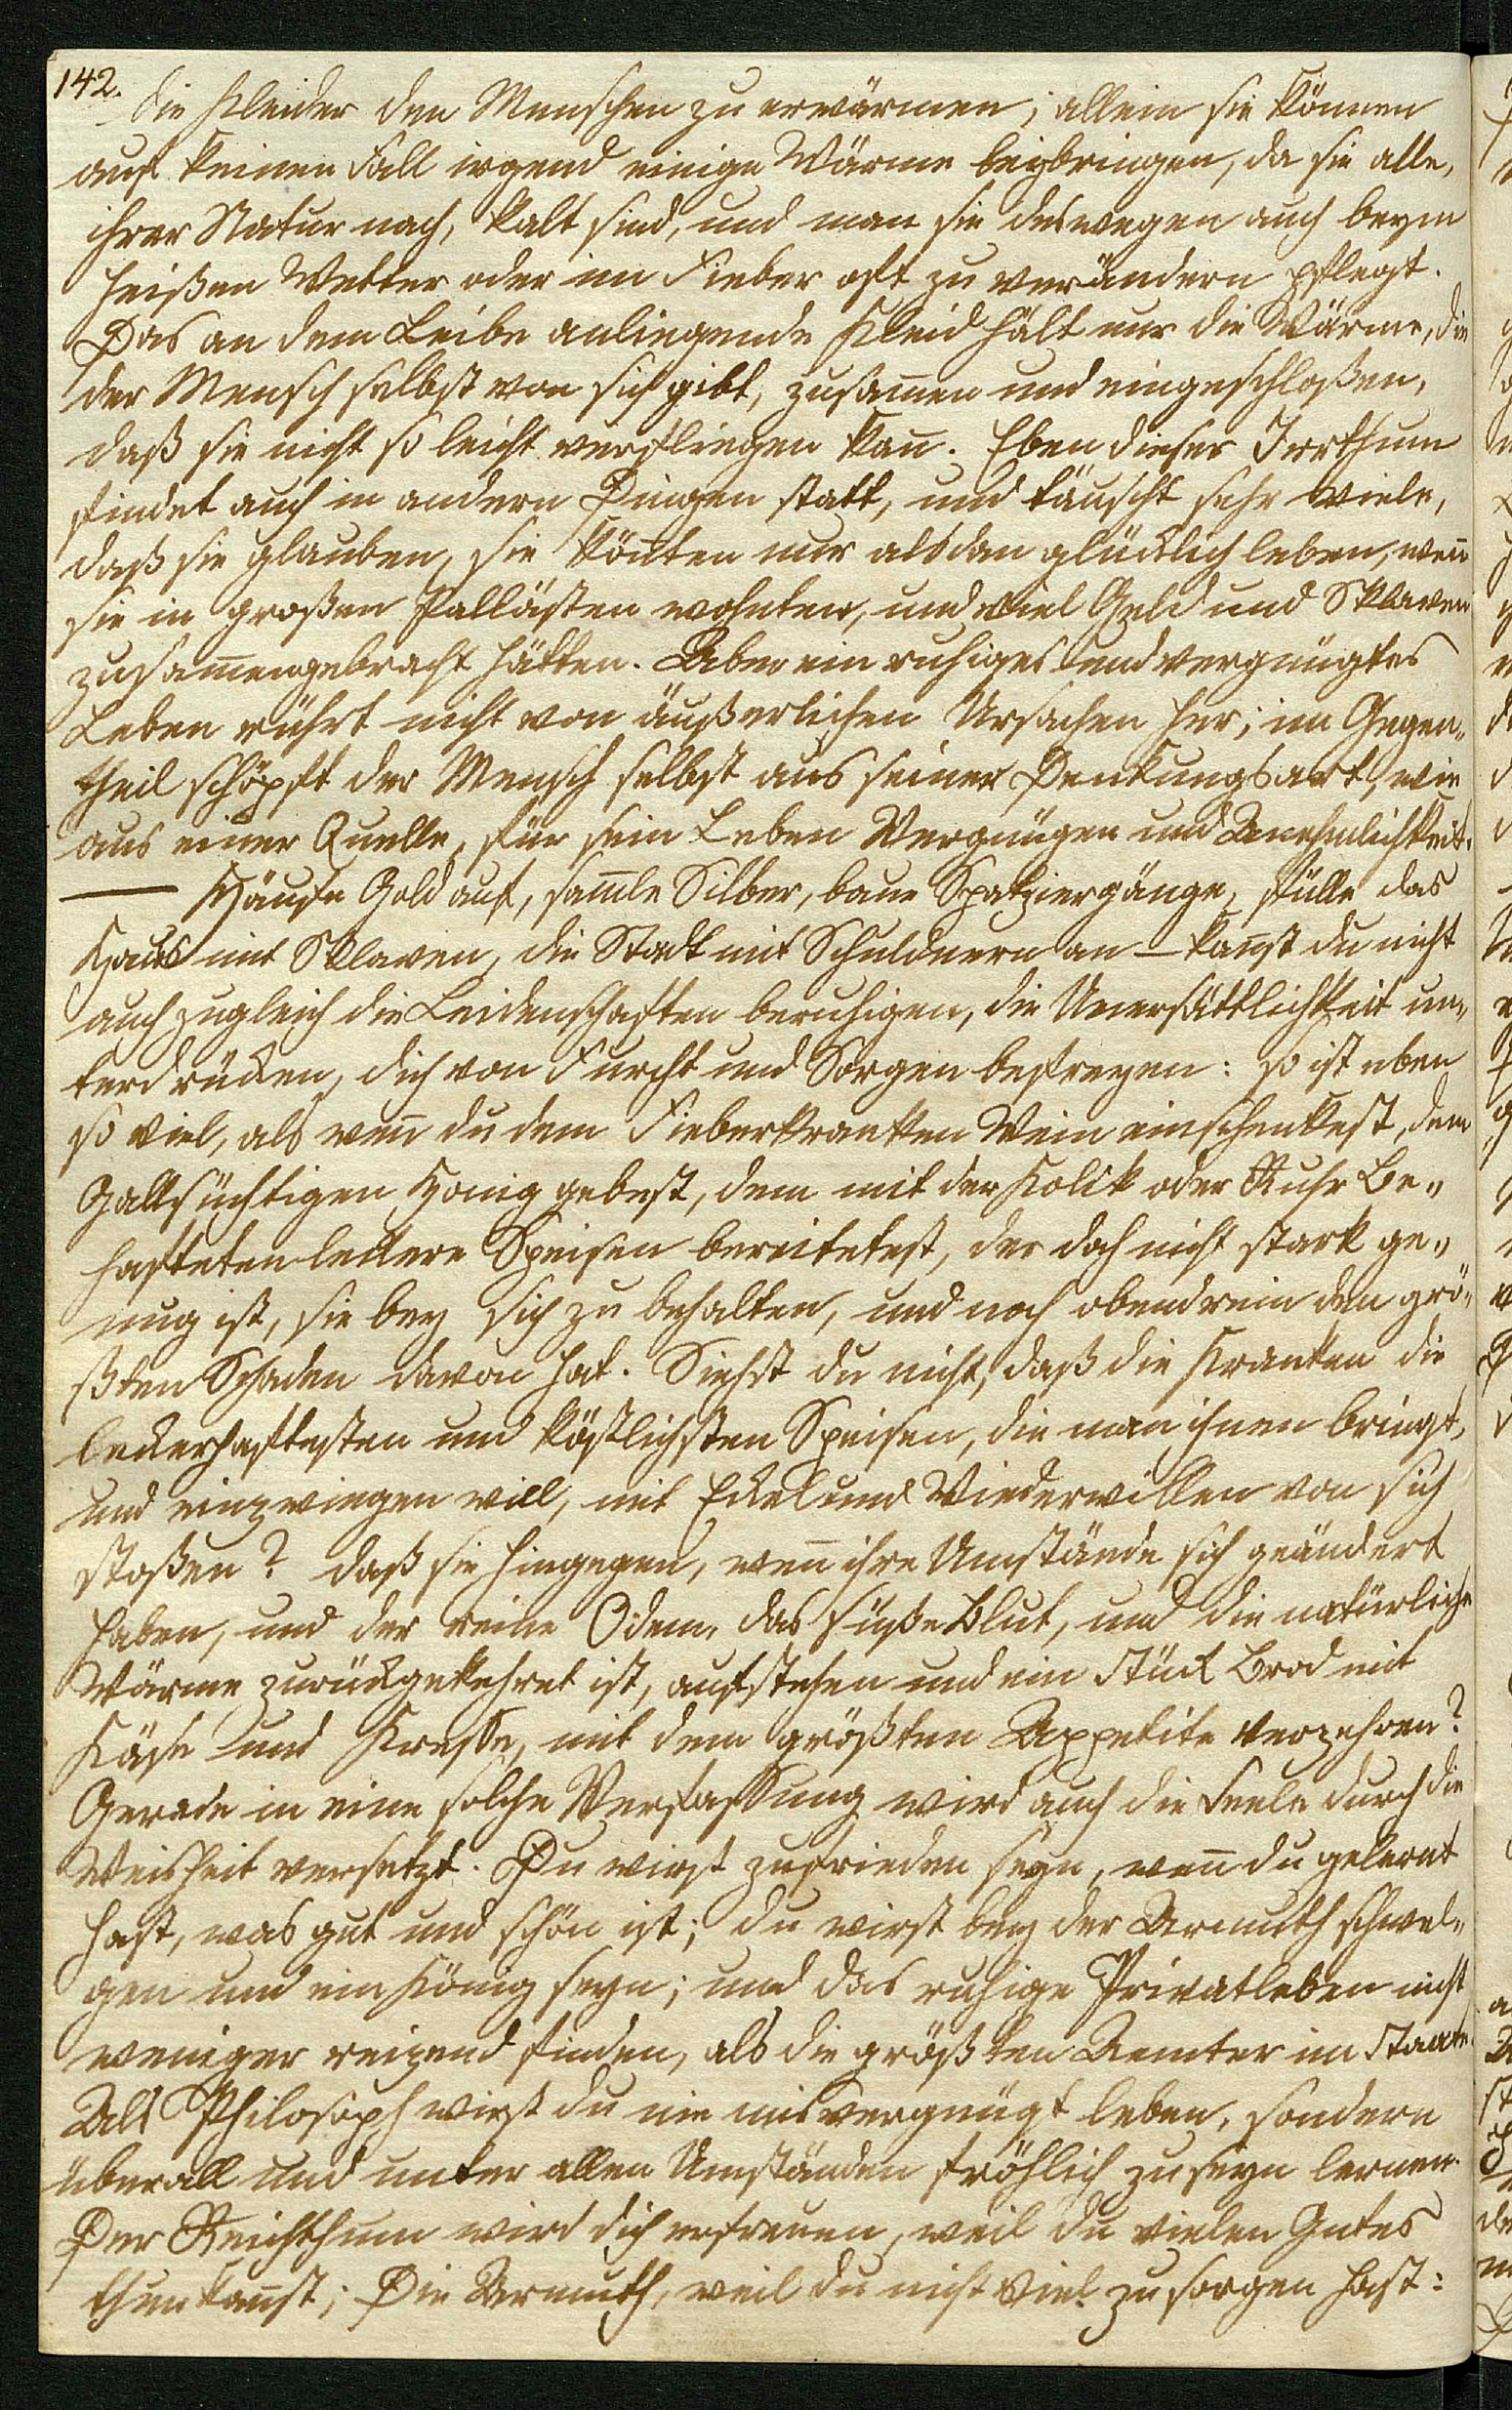 142.
die Kleider den Menschen zu erwärmen; allein sie können
auf keinen Fall irgend einige Wärme beybringen, da sie alle,
ihrer Natur nach, kalt sind, und man sie deswegen auch beym
heißen Wetter oder im Fieber oft zu verändern pflegt.
Das an dem Leibe anliegende Kleid hält nur die Wärme, die
der Mensch selbst von sich gibt, zusam̄en und eingeschloßen,
daß sie nicht so leicht verfliegen kan̄. Eben dieser Irrthum
findet auch in andern Dingen statt, und täuscht sehr viele,
daß sie glauben, sie kön̄ten nur alsdan glücklich leben, wen̄
sie in großen Pallästen wohnten, und viel Geld und Sklaven
zusam̄engebracht hätten. Aber ein ruhiges und vergnügtes
Leben rührt nicht von äußerlichen Ursachen her; im Gegen„
theil schöpft der Mensch selbst aus seiner Denkungsart, wie
aus einer Quelle, für sein Leben Vergnügen und Annehmlichkeit.
— Häufe Gold auf, sam̄le Silber, baue Spatziergänge, fülle das
Haus mit Sklaven, die Stadt mit Schuldnern an – kan̄st du nicht
auch zugleich die Leidenschaften beruhigen, die Unersättlichkeit un„
terdrücken, dich von Furcht und Sorgen befreyen: so ist eben
so viel, als wen̄ du dem Fieberkranken Wein einschenkest, dem
Gallsüchtigen Honig gebest, dem mit der Kolik oder Ruhr Be„
hafteten leckere Speisen bereitetest, der doch nicht stark ge„
nug ist, sie bey sich zu behalten, und noch obendrein den grö„
ßten Schaden davon hat. Siehst du nicht, daß die Kranken die
leckerhaftesten und köstlichsten Speisen, die man ihnen bringt,
und einzwingen will, mit Eckel und Wiederwillen von sich
stoßen? daß sie hingegen, wen̄ ihre Umstände sich geändert
haben, und der reine Odem, das süße Blut, und die natürliche
Wärme zurückgekehret ist, aufstehen und ein Stück Brod mit
Käse und Kresse, mit dem größten Appetite verzehren?
Gerade in eine solche Verfassung wird auch die Seele durch die
Weisheit versetzt. Du wirst zufrieden seyn, wen̄ du gelernt
hast, was gut und schön ist; du wirst bey der Armuth schwel„
gen und ein König seyn; und das ruhige Privatleben nicht
weniger reizend finden, als die größten Aemter im Staate.
Als Philosoph wirst du nie misvergnügt leben, sondern
überall und unter allen Umständen fröhlich zu seyn lernen.
Der Reichthum wird dich erfreuen, weil du vielen Gutes
thun kan̄st; Die Armuth, weil du nicht viel zu sorgen hast: